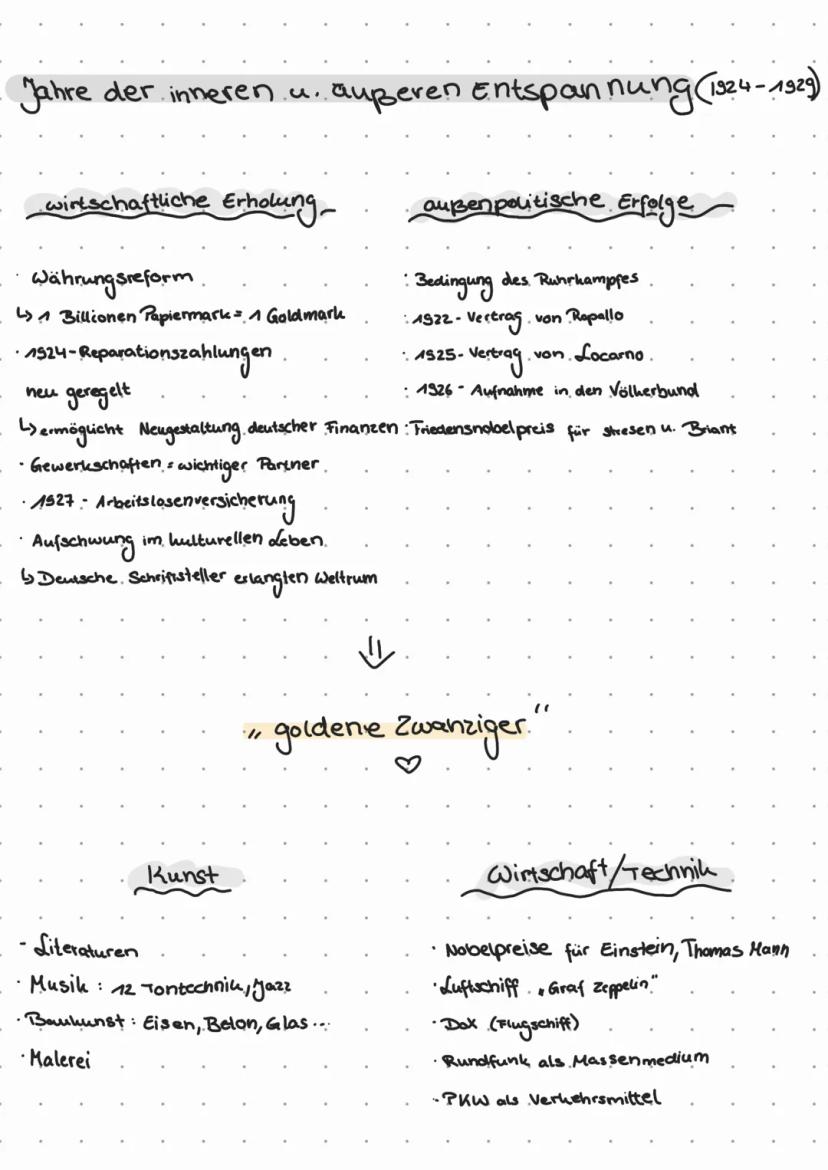 Jahre der inneren u. äußeren Entspannung (1924-1929)
wirtschaftliche Erholung
· Währungsreform
↳ 1 Billionen Papiermark = 1 Goldmark
· 1924-Reparationszahlungen
neu geregelt
↳ ermöglicht Neugestaltung deutscher Finanzen
· Gewerkschaften = wichtiger Partner
· 1927 - Arbeitslosenversicherung
· Aufschwung im kulturellen Leben
↳ Deutsche Schriftsteller erlangten Weltrum
außenpolitische Erfolge
· Bedingung des Ruhrkampfes
· 1922 - Vertrag von Rapallo
· 1925 - Vertrag von Locarno
· 1926 - Aufnahme in den Völkerbund
: Friedensnobelpreis für Stresen u. Briant
⇓
„goldene Zwanziger"
♡
Kunst
- Literaturen
· Musik : 12 Tontechnik, Jazz
· Baukunst : Eisen, Beton, Glas...
· Malerei
Wirtschaft/Technik
· Nobelpreise für Einstein, Thomas Mann
· Luftschiff „Graf Zeppelin"
· DoX (Flugschiff)
· Rundfunk als Massenmedium
· PKW als Verkehrsmittel